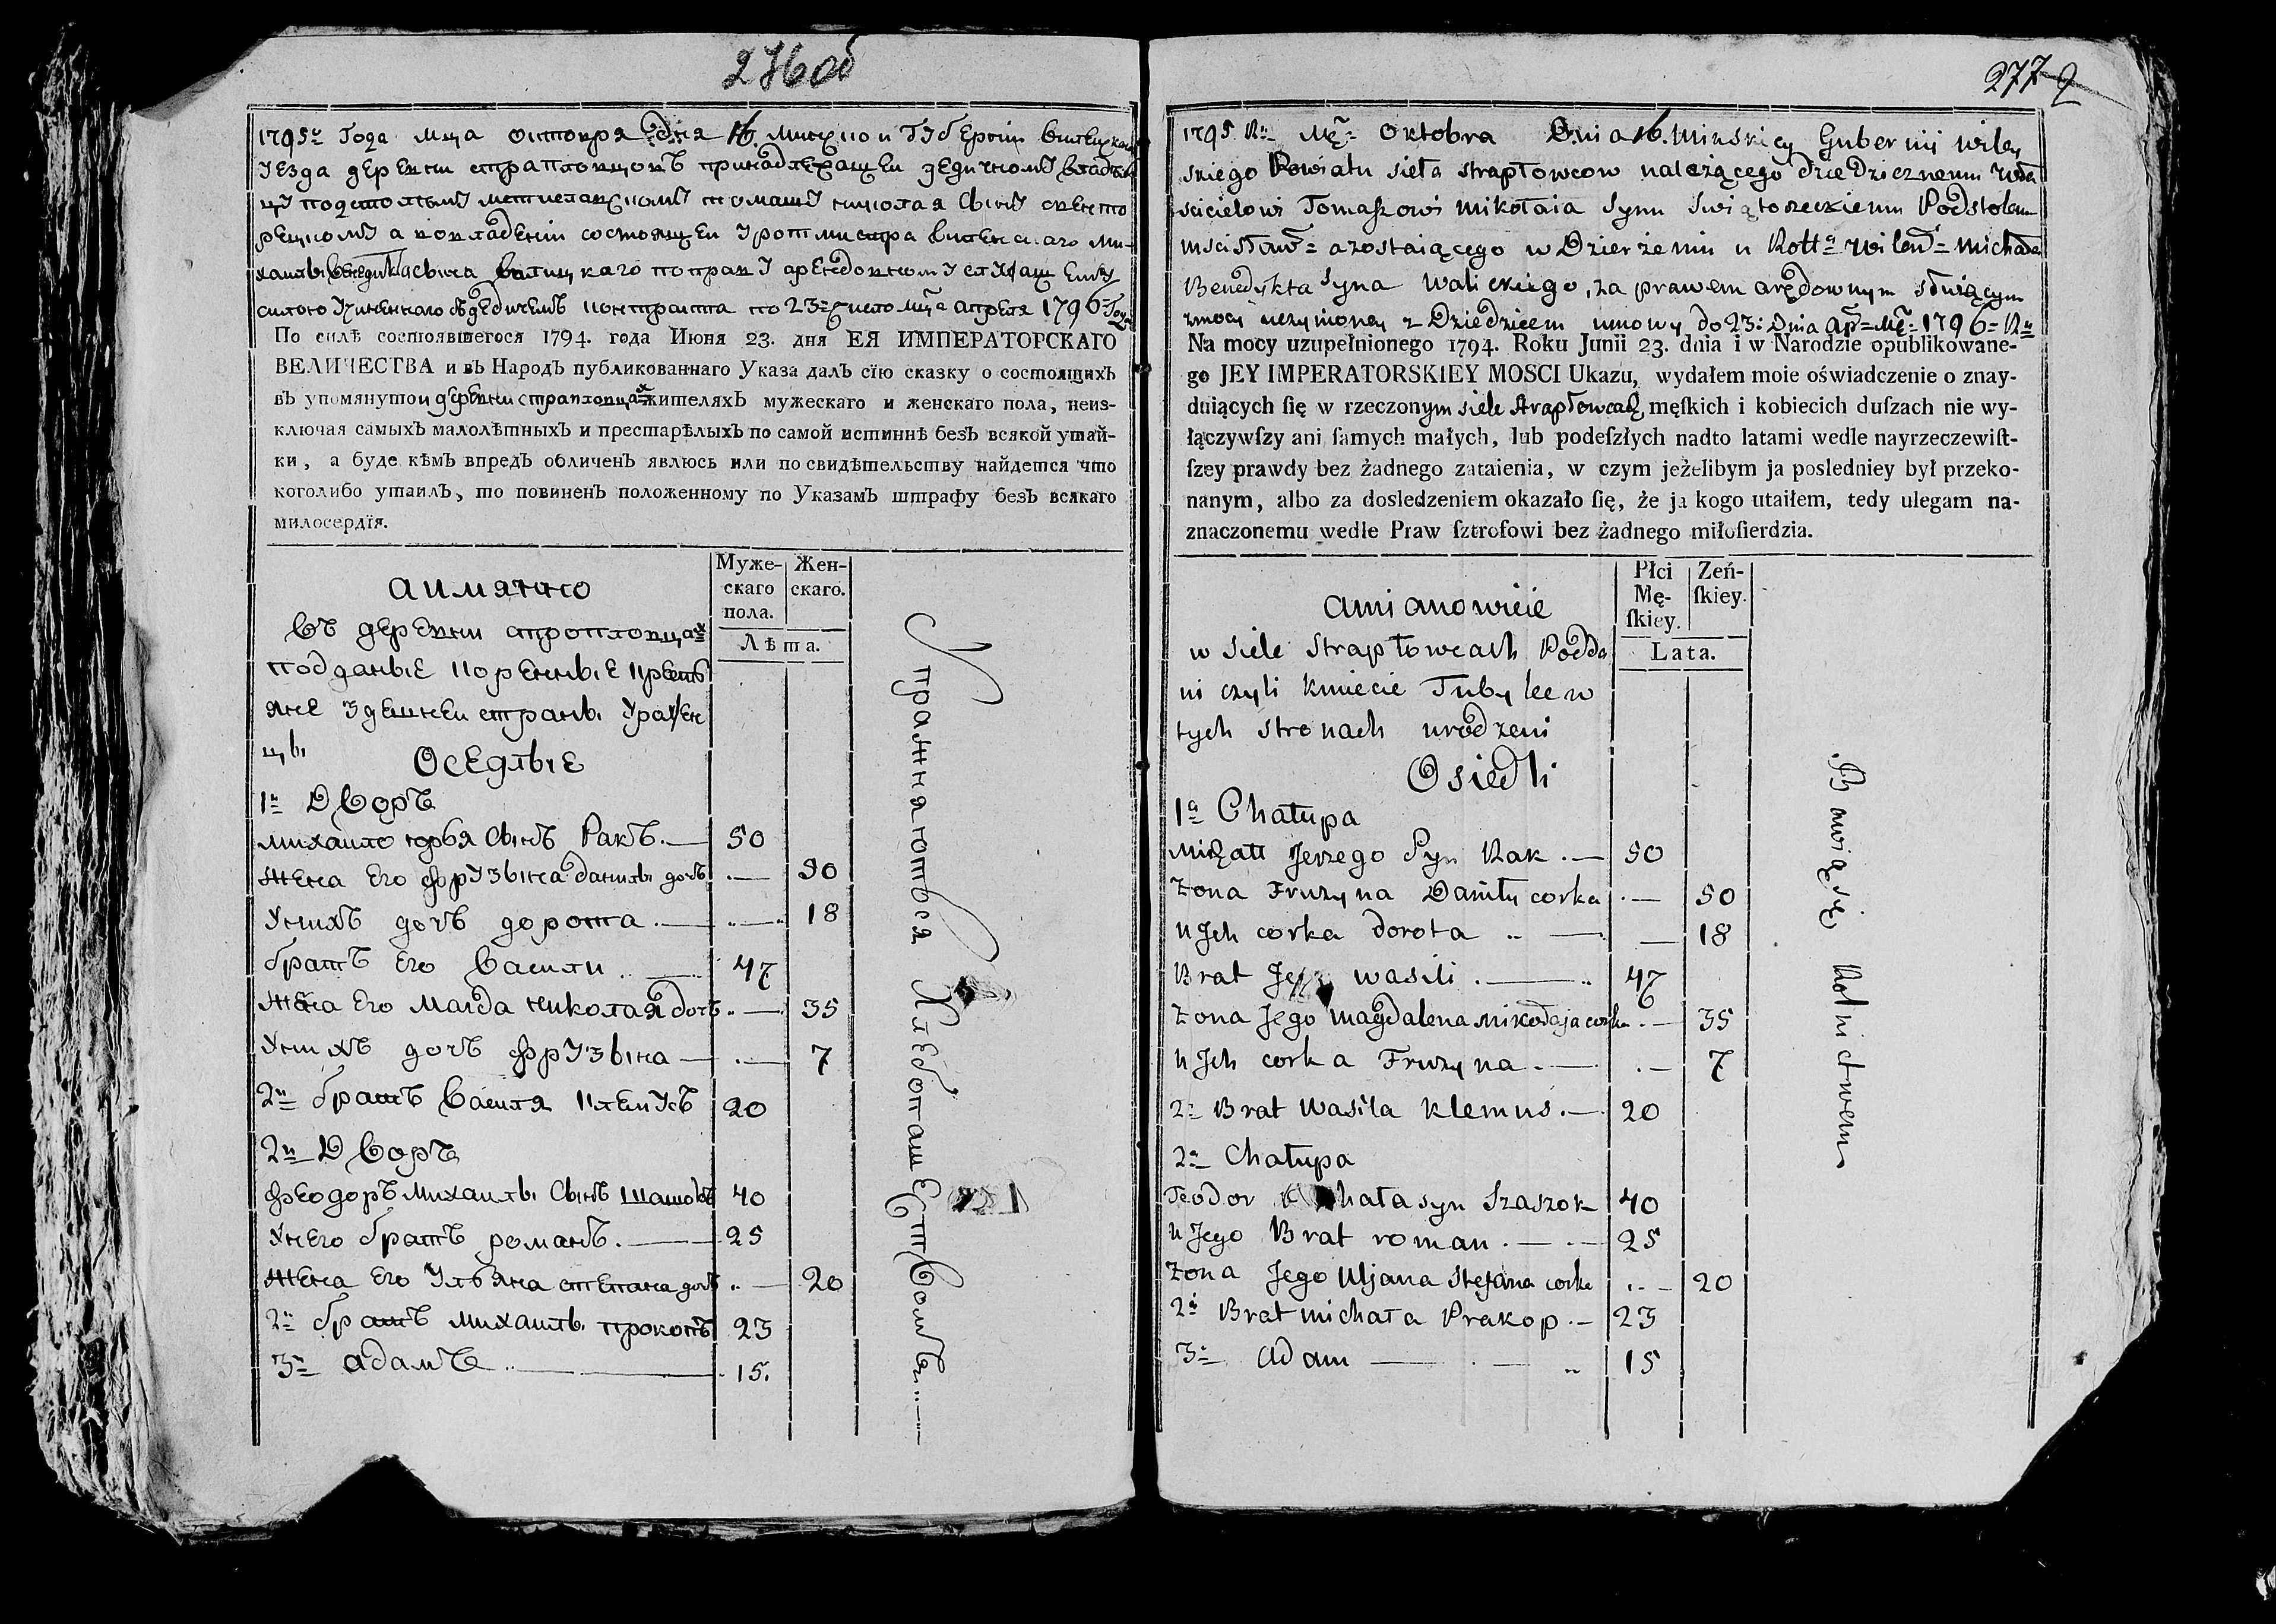 276об
1795го Года мца октовря дня 16. минской Губерніи вилейскаго
уезда деревни страпловцовъ принадлежащей дедичному владель
цу подстолыему мстиславскому томашу николая сыну свенто
рецкому а вовладеніи состоящей у ротмистра виленскаго ми-
хаилы бенедикта сына валицкаго по праву арендовному служащему
силою учиненнаго съ дедичемъ контракта по 23е число мца апреля 1796 Году
По силѣ состоявшегося 1794. года Июня 23. дня ЕЯ ИМПЕРАТОРСКАГО
ВЕЛИЧЕСТВА и въ Народъ публикованнаго Указа далъ сїю сказку о состоящихъ
въ упомянутой деревни страпловцахъ жителяхъ мужескаго и женскаго пола, неиз-
ключая самыхъ малолѣтныхъ и престарѣлыхъ по самой истиннѣ безъ всякой утай-
ки, а буде кѣмъ впредъ обличенъ явлюсь или по свидѣтельству найдется что
коголибо утаилъ, то повиненъ положенному по Указамъ штрафу безъ всякаго
милосердїя.
Муже- Жен-
скаго скаго.
пола.
Лѣта.
а имянно
въ деревни страпловцахъ
подданые коренные кресть
яне здешней страны уражен
цы
Оседлые
1й Дворъ
михайло юрья сынъ Ракъ. 50
жена его фрузына данилы дочь 50
у них дочь дорота 18
братъ его василий 47
жена его магда николая дочь 35
у нихъ дочь фрузына 7
2й братъ василя клемусъ 20
2й Дворъ
феодоръ михаилы сынъ шашокъ 40
у него братъ романъ. 25
жена его ульяна степана дочь 20
2й братъ михаилы прокопъ 23
3й адамъ 15.
Упражняються Хлебопашеством
277
1795 Ru Mca Oktobra Dnia 16. Minskiey Gubernii wiley
skiego Powiatu sieła strapłowcow należącego dziedzicznemu wła
scicielowi Tomaszowi Mikołaia Synu Swiątorzeckiemu Podstolemu
mscisław= a zostaiącego w Dzierżeniu u Rott= wilen= michała
Benedykta Syna Walickiego, za prawem arędownym służącym
z mocy uczynioney z Dziedzicem umowy do 23: Dnia Apr= Mca= 1796= Ru
Na mocy uzupełnionego 1794. Roku Junii 23. dnia i w Narodzie opublikowane-
go JEY IMPERATORSKIEY MOSCI Ukazu, wydałem moie oświadczenie o znay-
duiących ſię w rzeczonym siele strapłowcach męſkich i kobiecich duſzach nie wy-
łączywſzy ani ſamych małych, lub podeſzłych nadto latami wedle nayrzeczewiſt-
ſzey prawdy bez żadnego zataienia, w czym jeżelibym ja posledniey był przeko-
nanym, albo za dosledzeniem okazało ſię, że ja kogo utaiłem, tedy ulegam na-
znaczonemu wedle Praw ſztrofowi bez żadnego miłoſierdzia.
Płci Zeń-
Mę- ſkiey.
ſkiey.
Lata.
a mianowicie
w siele strapłowcach Podda
ni czyli kmiecie Tubylce w
tych stronach urodzeni
Osiedli
1a Chałupa
Michał Jerzego Syn Rak 50
Żona Fruzyna Daniły corka 50
u Jch corka dorota 18
Brat Jego wasili 47
Żona Jego magdalena mikołaja corka 35
u Jch corka Fruzyna 7
2i Brat Wasila klemus. 20
2a Chałupa
Teodor Michała syn Szaszok 40
u Jego Brat roman 25
Żona Jego Uljana Stefana corka 20
2i Brat michała Prakop 23
3i Adam 15
Bawią się Rolnictwem